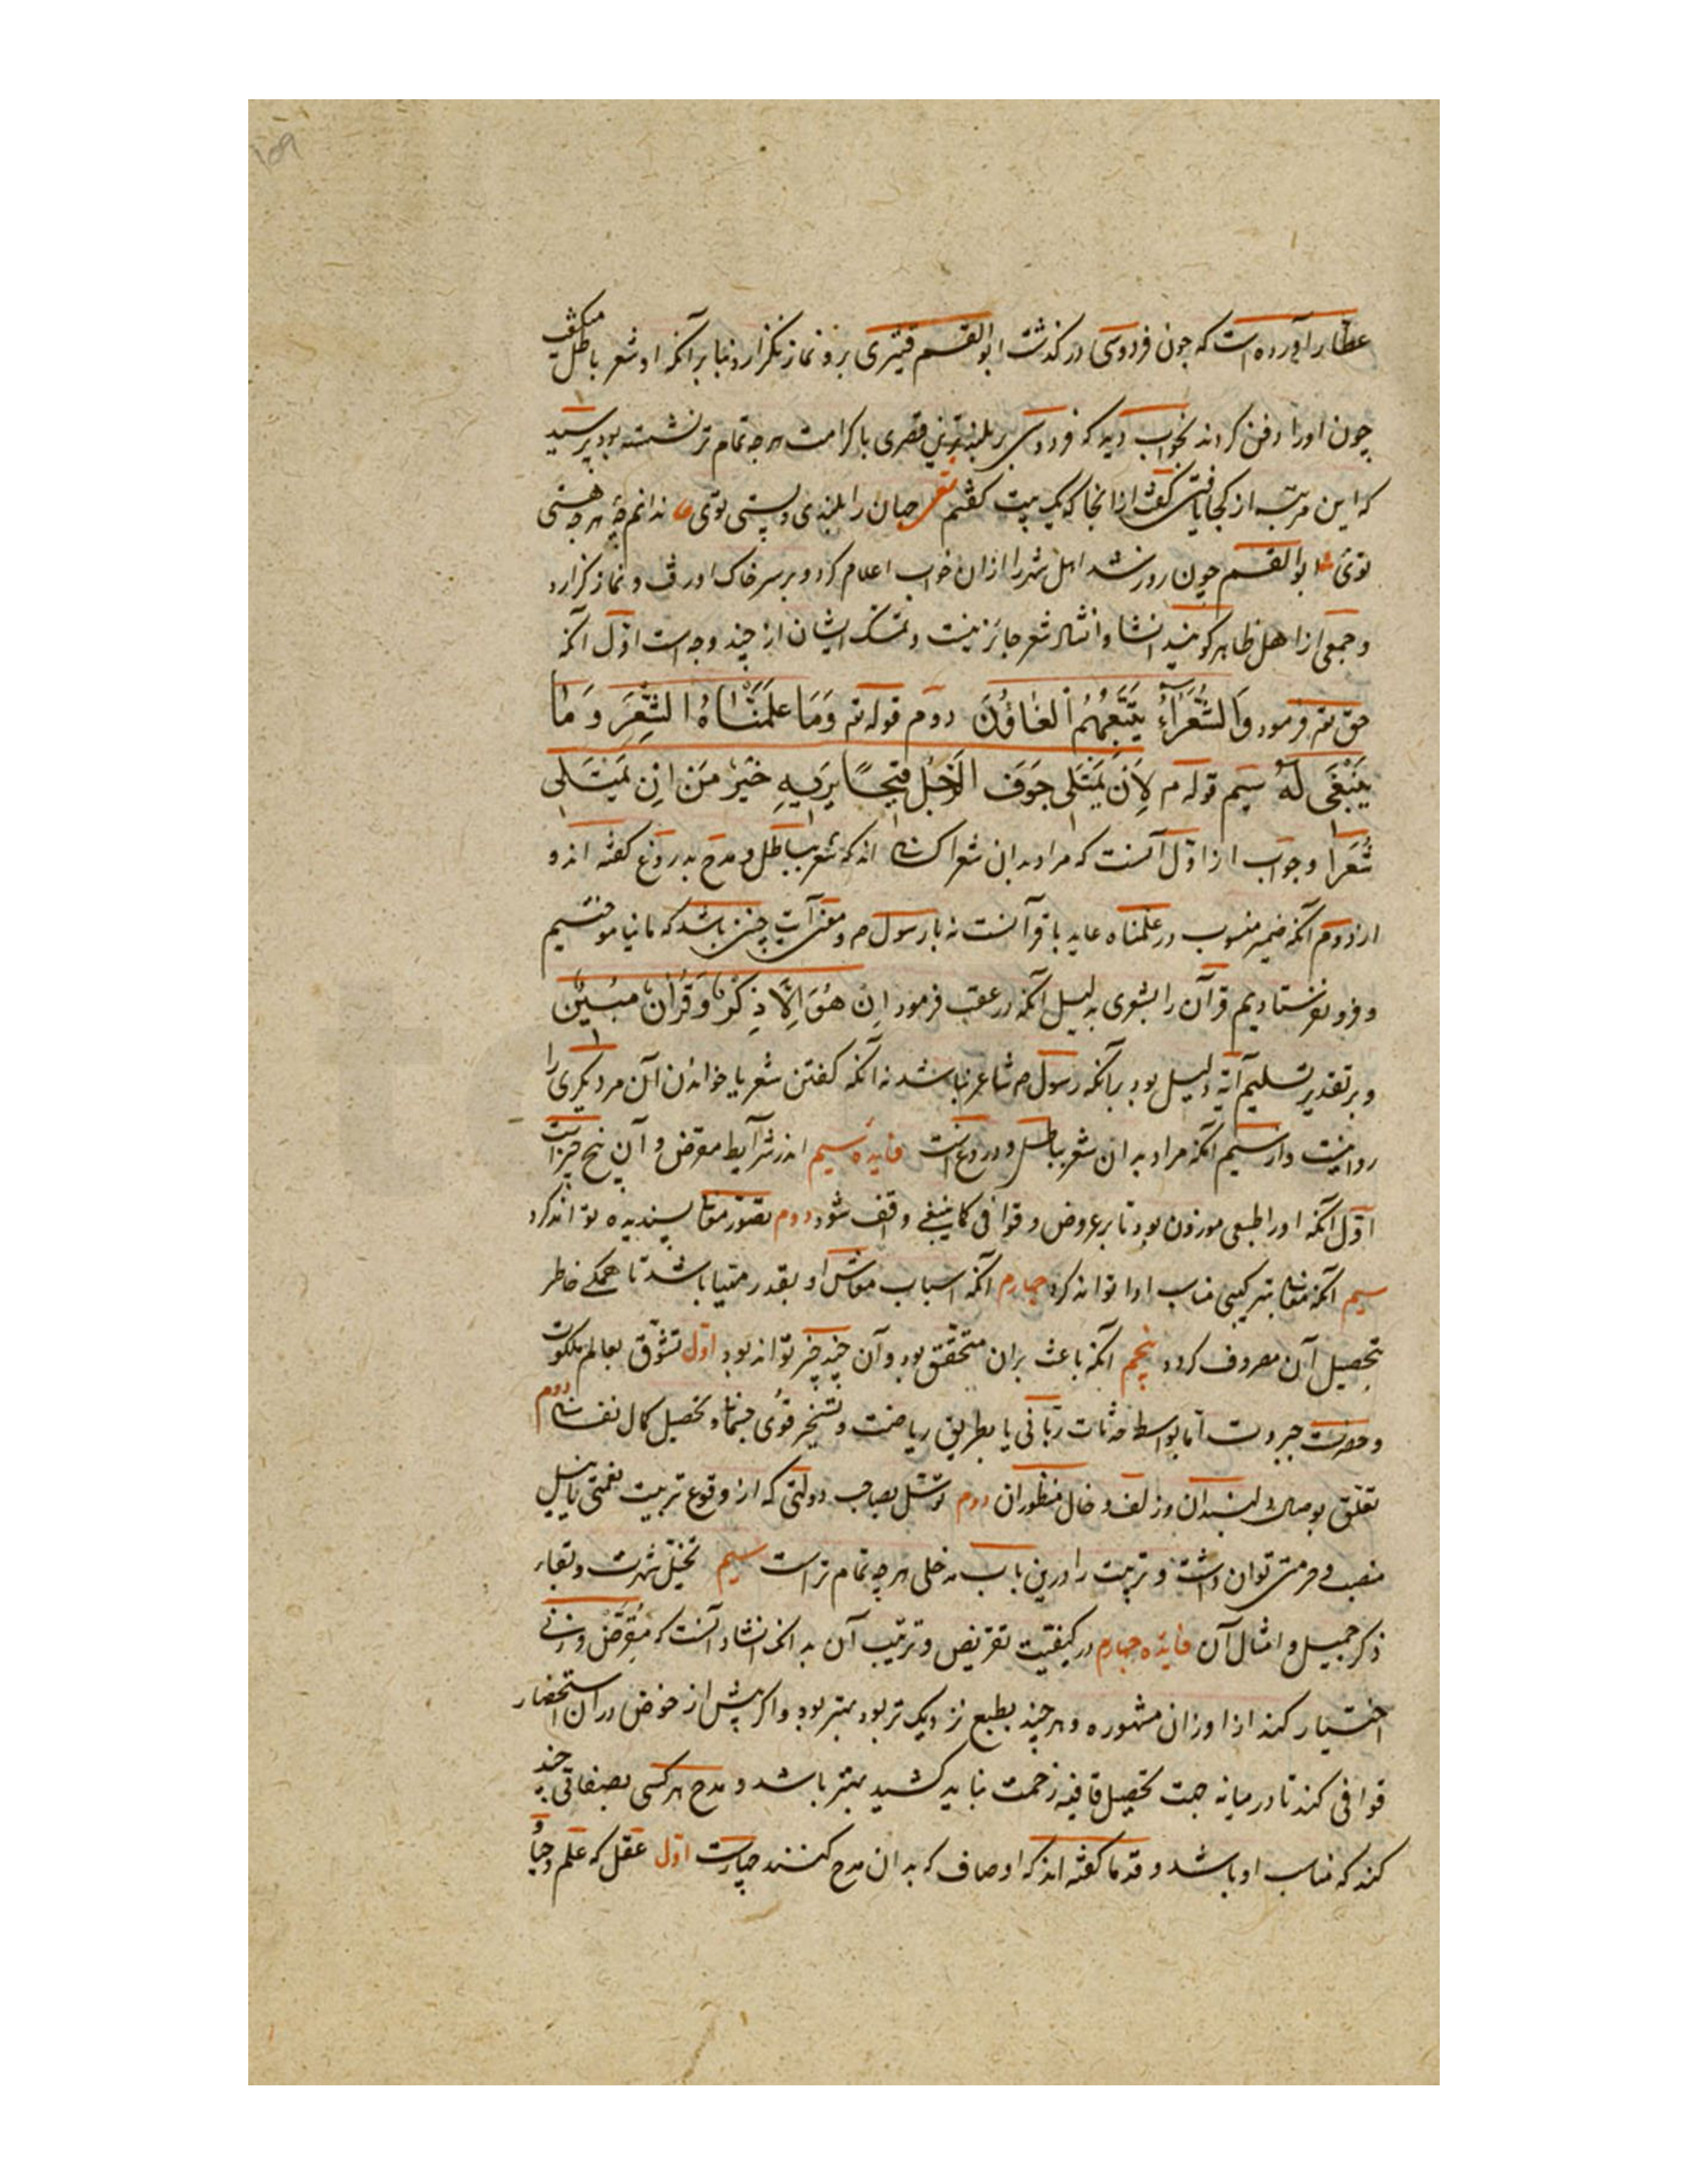 عطار آورده است که چون فردوسی درگذشت ابوالقسم قشیری برو نماز نگزارد بنا بر آنکه او شعر باطل میگفت
چون او را دفن کردند بخواب دید که فردوسی بر بلندترین قصری با کرامت هرچه تمام‌تر نشسته بود پرسید
که این مرتبه از کجا یافتی گفت ازانجا که یک بیت گفتم جهان را بلندی و پستی توی ندانم چهٔ هرچه هستی
توی ابوالقسم چون روز شد اهل شهر را ازان خواب اعلام کرد و بر سر خاک او رفت و نماز گزارد
و جمعی از اهل ظاهر گویند انشا و انشاد شعر جائز نیست و تمسک ایشان از چند وجه است اوّل آنکه
حق تع فرمود وَالشُّعَرَاءُ يَتَّبِعُهُمُ الْغَاوُنَ دوم قوله تع وَمَا عَلَّمْنَاهُ الشِّعْرَ وَمَا
يَنْبَغِى لَهُ سیم قوله م لِاَنْ يَمْتَلِى جَوْفَ الرَّجُلِ قَيْحًا يَرِيهِ خَيْرٌ مِنْ اَنْ يَمْتَلِى
شِعْرا و جواب از اوّل آنست که مراد بدان شعرا کسانی اند که شعر باطل و مدح بدروغ گفته اند و
از دوم آنکه ضمیر منسوب در علمناه عاید با قرآنست نه با رسول ص و معنی آیت چنین باشد که ما نیاموختیم
و فرو نفرستادیم قرآن را بشعری بدلیل آنکه در عقب فرمود اِنْ هُوَ اِلَّا ذِكْرٌ وَقُرْآنٌ مُبِينٌ
و بر تقدیر تسلیم آیة دلیل بود برآنکه رسول ص شاعر نباشد نه آنکه گفتن شعر یا خواندن آن مر دیگری را
روا نیست و از سیم آنکه مراد بدان شعر باطل و دروغ است فایدهٔ سیم در شرایط مقرض و آن پنج چیز است
اوّل آنکه او را طبعی موزون بود تا بر عروض و قوافی کما ینبغی واقف شود دوم تصوّر معانی پسندیده تواند کرد
سیم آنکه معانی بترکیبی مناسب ادا تواند کرد چهارم آنکه اسباب معاش او بقدر مهیا باشد تا همگی خاطر
تحصیل آن مصروف گردد پنجم آنکه باعث بران متحقّق بود و آن چند چیز تواند بود اوّل تشوّق بعالم ملکوت
و حضرت جبروت اما بواسطه جذبات ربّانی یا بطریق ریاضت و تسخیر قوی جسمانی و تحصیل کمال نفسانی دوم
تعلّق بوصال دلبندان و زلف و خال منظوران دوم توسّل بصاحب دولتی که از وقوع تربیت نعمتی یا نیل
منصب و حرمتی توان داشت و تربیت را درین باب مدخلی هرچه تمام‌تر است سیم تخیّل شهرت و بقاء
ذکر جمیل و امثال آن فایده چهارم در کیفیّت تقریض و ترتیب آن بدانکه انشاد آنست که مقرّض وزنی
اختیار کند از اوزان مشهوره و هرچند بطبع نزدیک‌تر بود بهتر بود و اگر پیش از خوض دران استحضار
قوافی کند تا در میانه جهت تحصیل قافیه زحمت نباید کشید بهتر باشد و مدح هر کسی بصفاتی چند
کند که مناسب او باشد و قدما گفته اند که اوصاف که بدان مدح کنند چهارست اوّل عقل که علم و حیا و